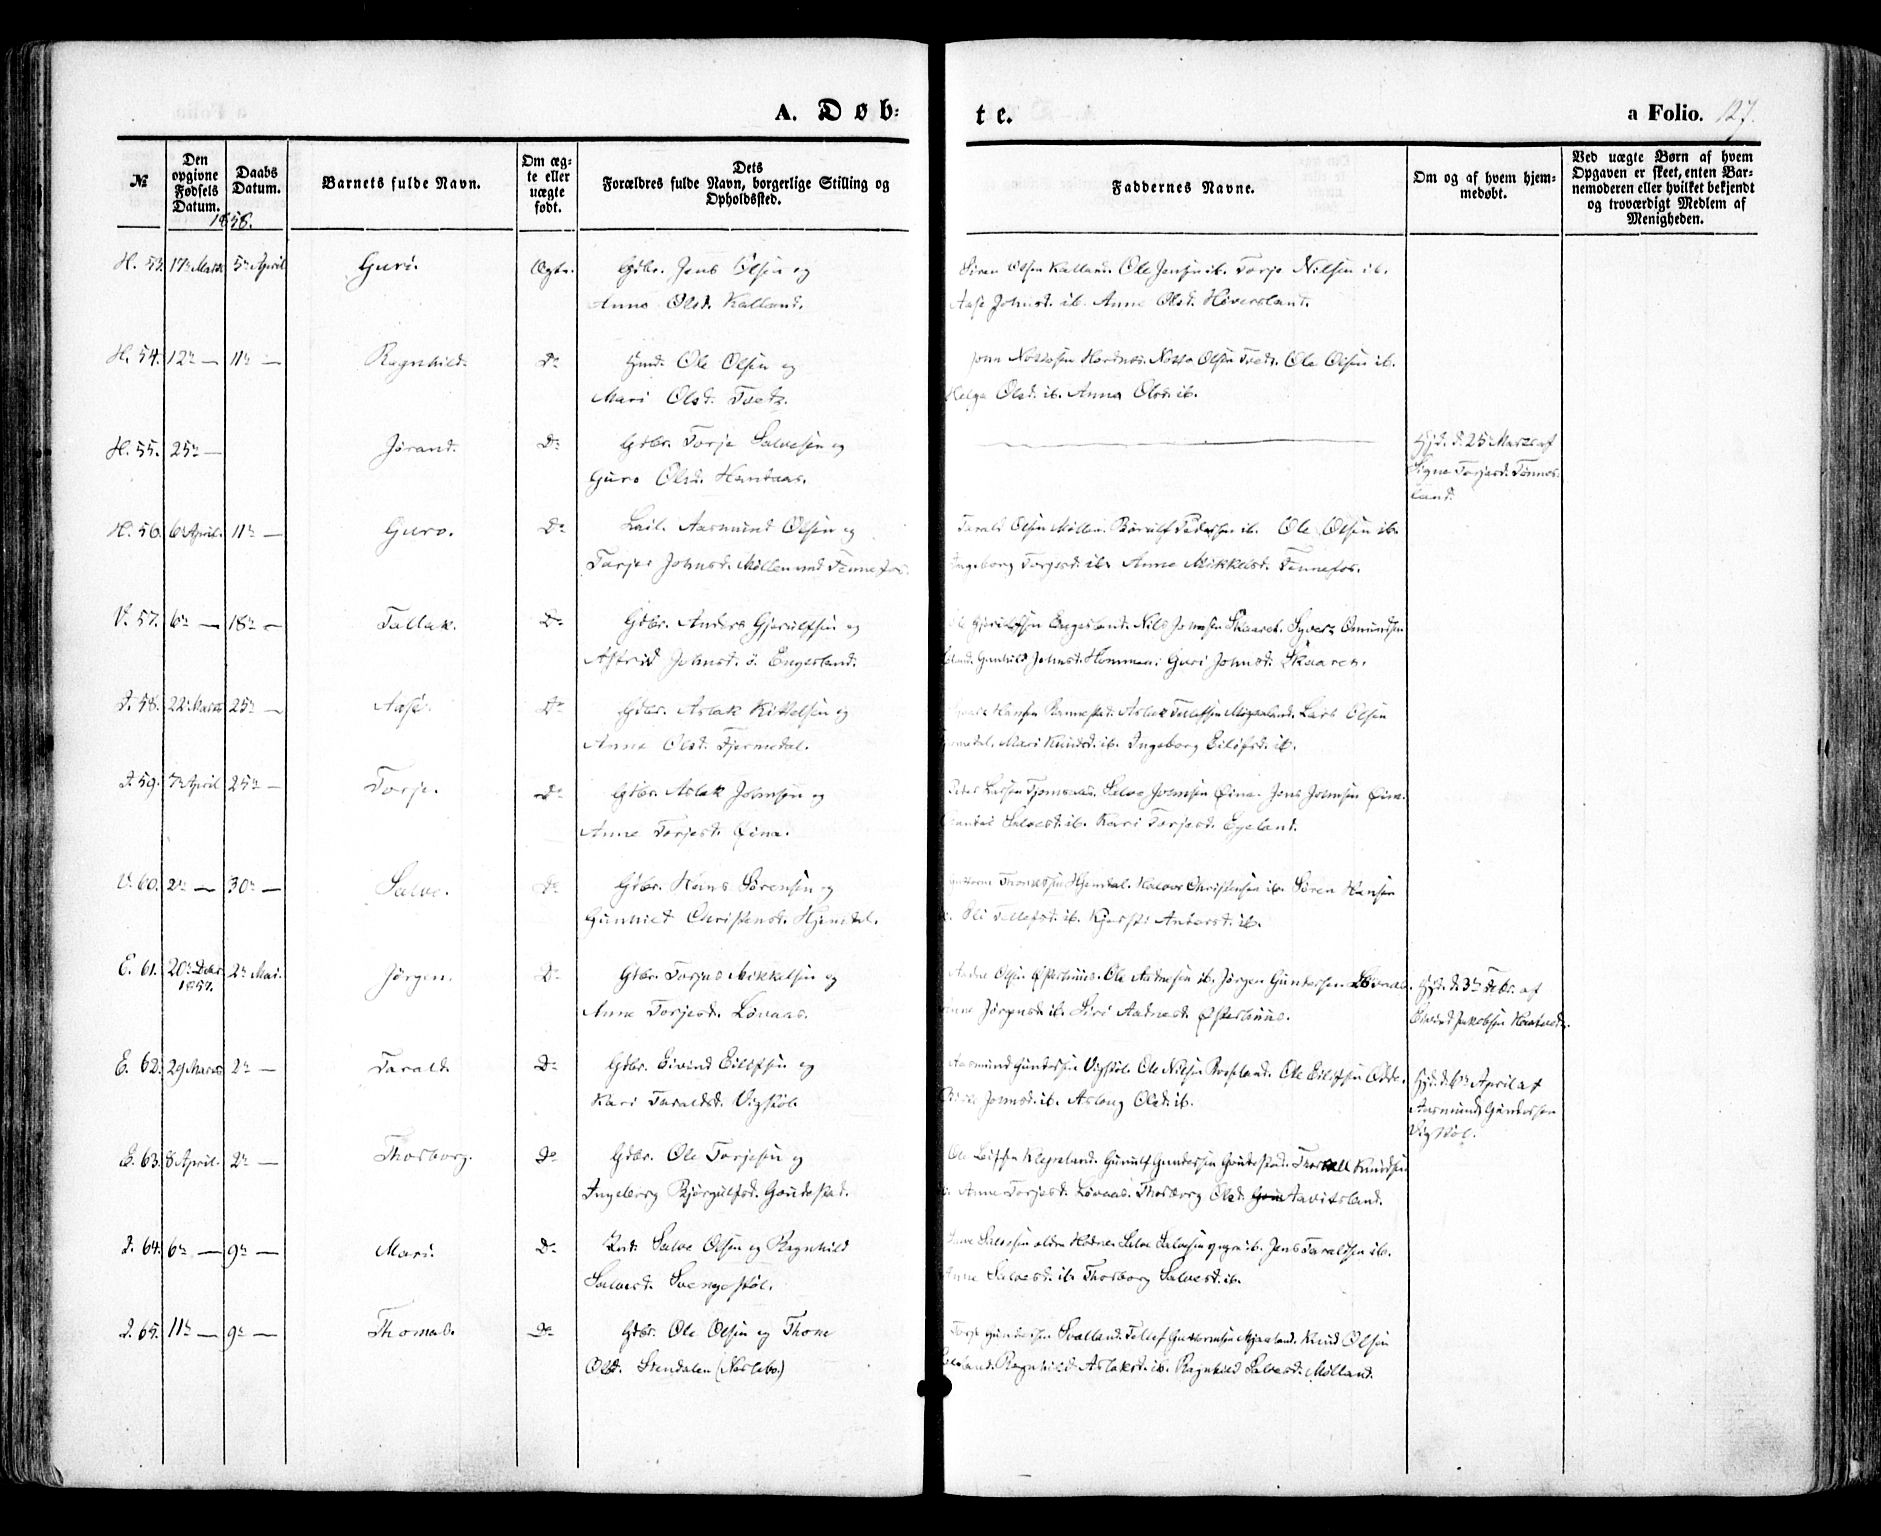 A. Døb:
te.
a Folio. 127.
№
Den opgivne Fødsels Datum.
1858.
Daabs Datum.
Barnets fulde Navn.
Om ægte eller uægte født.
Dets Forældres fulde Navn, borgerlige Stilling og Opholdssted.
Faddernes Navne.
Om og af hvem hjemmedøbt.
Ved uægte Børn af hvem Opgaven er skeet, enten Barnemoderen eller hvilket bekjendt og troværdigt Medlem af Menigheden.
H. 53. 17de Marts 5te April Guri. Ægte. Gdbr. Jens Olsen og
Anne Olsd. Kalland.
Søren Olsen Kalland. Ole Jensen ib. Torje Nilsen ib.
Aase Johnsd. ib. Anne Olsd. Høversland.
H. 54. 12te — 11te — Ragnhild. Do Hmd. Ole Olsen og
Mari Olsd. Tvedt.
Notto Olsen Tvedt. Ole Olsen ib.
Helga Olsd. ib. Anna Olsd. ib.
H. 55. 25de — Jørand. Do Gdbr. Torje Salvesen og
Guro Olsd. Hantaas.
Hjd. d. 25 Marts af
Signe Torjesd. Tønnes-
land.
H. 56. 6te April. 11te — Guro. Do Leil. Aasmund Olsen og
Torjer Johnsd. Møllen und. Fennefos.
Tarald Olsen Møllen. ib. Ole Olsen ib.
Ingeborg Torjesd. ib. Anne Mikkelsd. Fennefos.
V. 57. 6te — 18de — Tallak. Do Gdbr. Anders Gjerulfsen og
Astrid Johnsd. ø. Engesland.
Ole Gjerulfsen Engesland. Nils Johnsen Skaaret. Syvert Omundsen
Gunhild Johnsd. Hommen. Guri Johnsd. Skaaren.
I. 58. 22de Marts 25de — Aase. Do Gdbr. Aslak Kittelsen og
Anne Olsd. Fjermedal.
Hansen Rannestad. Aslak Tellefsen Mjaaland. Lars Olsen
Mari Knudsd. ib. Ingeborg Eilefsd. ib.
I. 59. 7de April 25de — Torje. Do Gdbr. Aslak Johnsen og
Anne Torjesd. Øina.
Peder Larsen Salve Johnsen Øina. Jens Johnsen Øina.
Salvesd. ib. Kari Torjesd. Egeland.
V. 60. 2den — 30te — Salve. Do Gdbr. Hans Sørensen og
Gunhild Christensd. Hjemdal.
Hjemdal. Halvor Christensen ib. Søren Hansen
ib. Oli Tellefsd. ib. Kjersti Andersd. ib.
E. 61. 20de Decbr 1857. 2den Mai. Jørgen. Do Gdbr. Torjus Mikkelsen og
Anne Torjesd. Løvaas.
Aadne Olsen Østerhuus. Ole Aadnesen ib. Jørgen Gundersen Løvaas.
Anne Jørgensd. ib. Siri Aadnesd. Østerhuus.
Hjd. d. 3de Febr. af
Eivind Jakobsen
E. 62. 29 Marts 2den — Tarald. Do Gdbr. Eivind Eilefsen og
Kari Taraldsd. Vigstøl.
Aasmund Gundersen Vigstøl. Ole Nilsen Røiseland. Ole Eilefsen Odde.
Johnsd. ib. Aslaug Olsd. ib.
Hjd. d. 6te April af
Aasmund Gundersen
Vigstøl.
E. 63. 8 April. 2den — Thorborg. Do Gdbr. Ole Torjesen og
Ingeborg Bjørgulfsd. Gaudestad.
Ole Leifsen Klepsland. Gunulf Gundersen Gaudestad. Knudsen
ib. Anne Torjesd. Løvaas. Thorborg Olsd. Aavitsland.
I. 64. 6te — 9de — Mari. Do Ind. Salve Olsen og Ragnhild
Salvesd. Svengestøl.
Salve Salvesen ældre Hodne. Salve Salvesen yngre ib. Jens Taraldsen ib.
Anne Salvesd. ib. Thorborg Salvesd. ib.
I. 65. 11te — 9de — Thomas. Do Gdbr. Ole Olsen og Thone
Olsd. Stendalen (Næslebo.)
Torje Gundersen Svaland. Tellef Guttormsen Mjaaland. Knud Olsen
Ragnhild Aslaksd. ib. Ragnhild Salvesd. Mølland.